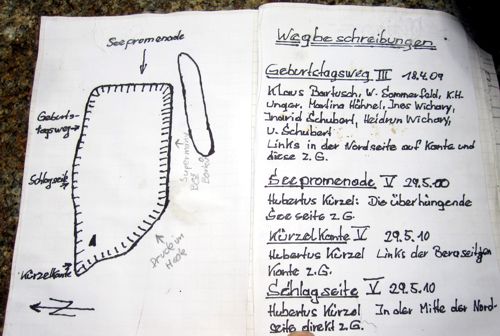 Seepromenade
Geburts-
tagsweg
Schlagseite
Kürzelkante
N
Wegbeschreibungen
Geburtstagsweg III 18.4.09
Klaus Bartusch, W. Sommerfeld, K.H.
Unger, Martina Höhnel, Ines Wichary,
Ingrid Schubert, Heidrun Wichary,
U. Schubert
Links in der Nordseite auf Kante und
diese z.G.
Seepromenade V 29.5.00
Hubertus Kürzel: Die überhängende
Seeseite z.G.
Kürzelkante V 29.5.10
Hubertus Kürzel Links der Bergseitigen
Kante z.G.
Schlagseite V 29.5.10
Hubertus Kürzel In der Mitte der Nord-
seite direkt z.G.